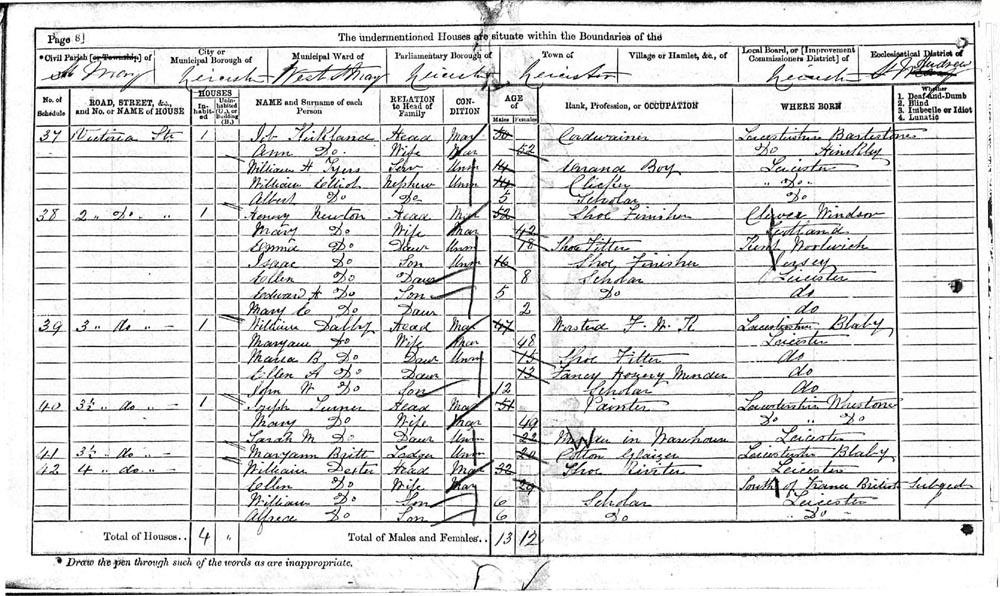 Page 8]
The undermentioned Houses are situate within the Boundaries of the
Civil Parish [or Township] of
City or Municipal Borough of
Municipal Ward of
Parliamentary Borough of
Town of
Village or Hamlet, &c., of
Local Board, or [Improvement Commissioners District] of
Ecclesiastical District of
St Mary Leicester West St Mary Leicester Leicester St Andrew
No. of Schedule
ROAD, STREET, &c., and No. or NAME of HOUSE
HOUSES
Inhabited
Uninhabited (U.), or Building (B.)
NAME and Surname of each Person
RELATION to Head of Family
CONDITION
AGE of
Males
Females
Rank, Profession, or OCCUPATION
WHERE BORN
Whether
1. Deaf-and-Dumb
2. Blind
3. Imbecile or Idiot
4. Lunatic
37 Victoria Str 1 Kirkland Head Mar Cordwainer Leicestershire
Ann Do Wife Mar 52 Do Hinckley
William H Tyers Unm 14 Errand Boy Leicester
William Elliot Nephew Unm 14 " Do
Albert Do Do 5 Scholar Do
38 2 " Do " " 1 Henry Newton Head Mar 52 Shoe Finisher Clewer Windsor
Mary Do Wife Mar 42 Scotland
Emma Do Daur Unm 18 Shoe Fitter Kent Woolwich
Isaac Do Son Unm 16 Shoe Finisher Jersey
Ellen Do Daur 8 Scholar Leicester
Edward A Do Son 5 Do do
Mary E Do Daur 2 do
39 3 " do " 1 William Dalby Head Mar 47 Worsted F. W. K Leicestershire Blaby
Maryann Do Wife Mar 48 Leicester
Maria B. Do Daur Unm 15 Shoe Fitter do
Ellen A Do Daur 13 Fancy Hosiery Mender do
John W Do Son 12 Scholar do
40 3½ " do " 1 Joseph Turner Head Mar 51 Painter Leicestershire
Mary Do Wife Mar 49 Do " Do
Sarah M Do Daur Unm 22 in Warehouse Leicester
41 3½ " do " Maryann Britt Lodger Unm 20 Cotton Leicestershire Blaby
42 4 " do " William Dexter Head Mar 32 Shoe Riviter Leicester
Ellen Do Wife Mar 29 South of France British Subject
William Do Son 6 Scholar Leicester
Alfred Do Son 6 Do " Do
Total of Houses.. 4 " Total of Males and Females.. 13 12
* Draw the pen through such of the words as are inappropriate.